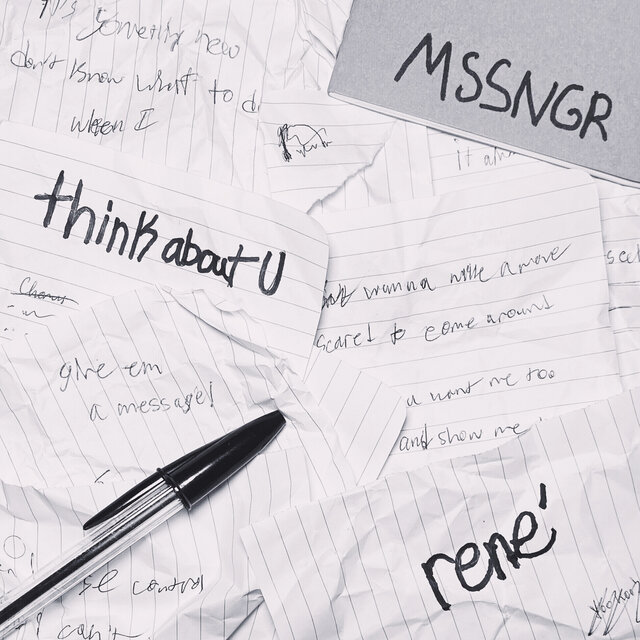 Something new
don't know what to d
when I
MSSNGR
think about U
it al
wanna make a move
scared to come around
u want me too
and show me
give em
a message!
rene'
se control
I can't